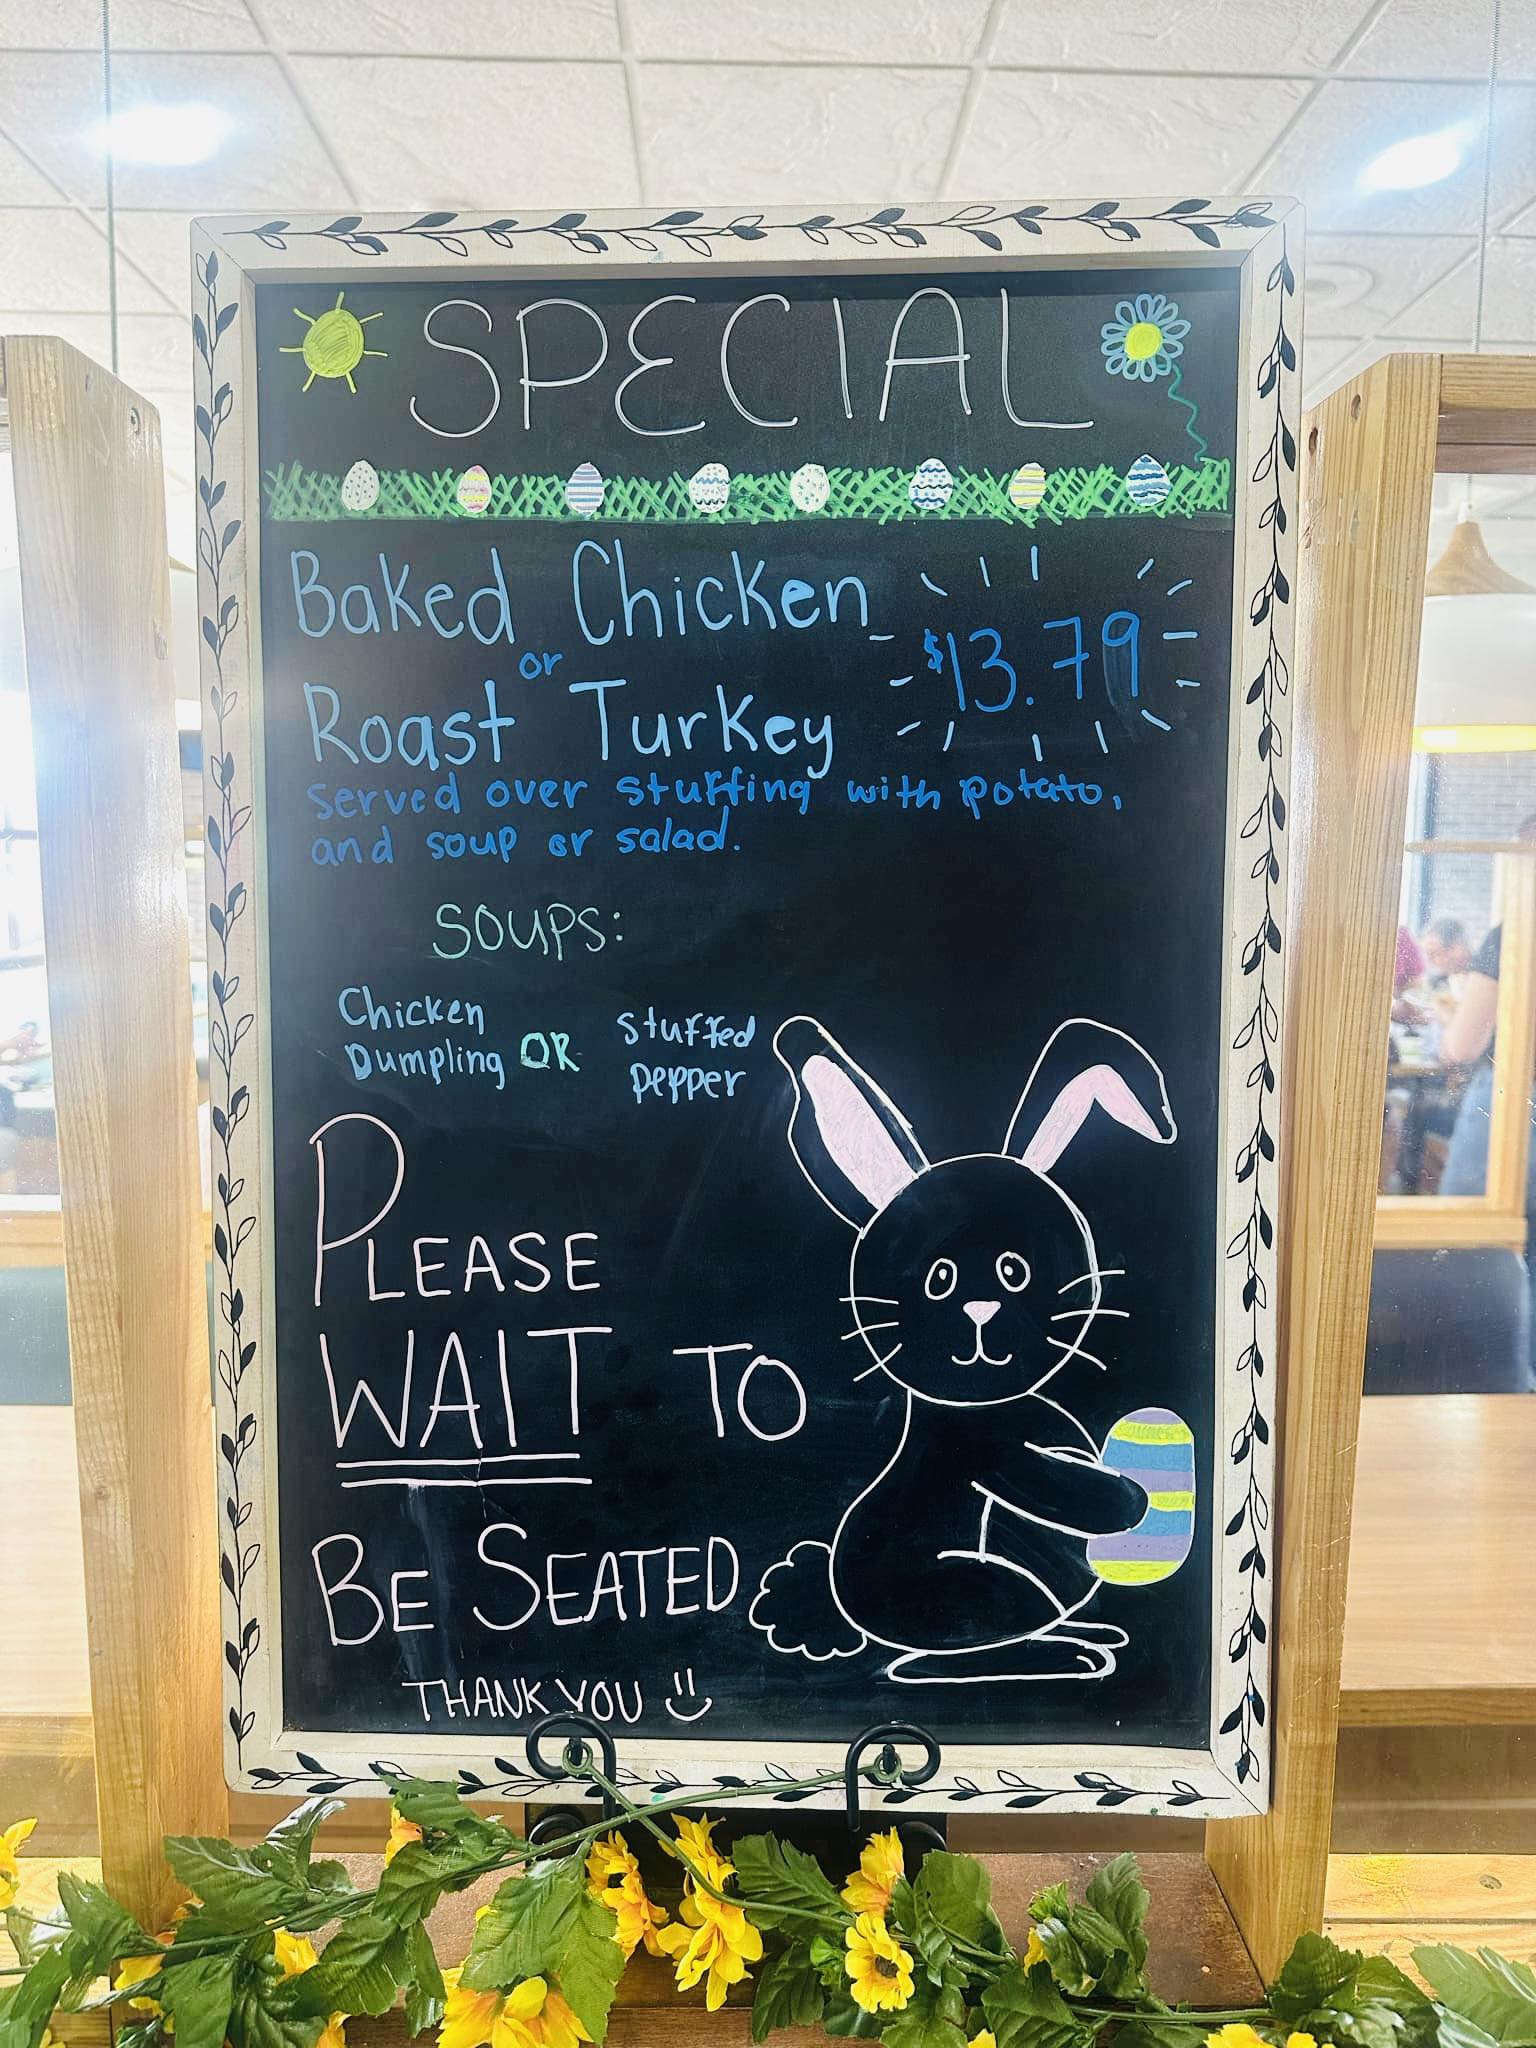 SPECIAL
Baked Chicken
or
$13.79
Roast Turkey
served over stuffing with potato,
and soup or salad.
SOUPS:
Chicken
Dumpling
OR
Stuffed
pepper
PLEASE
WAIT TO
BE SEATED
THANK YOU